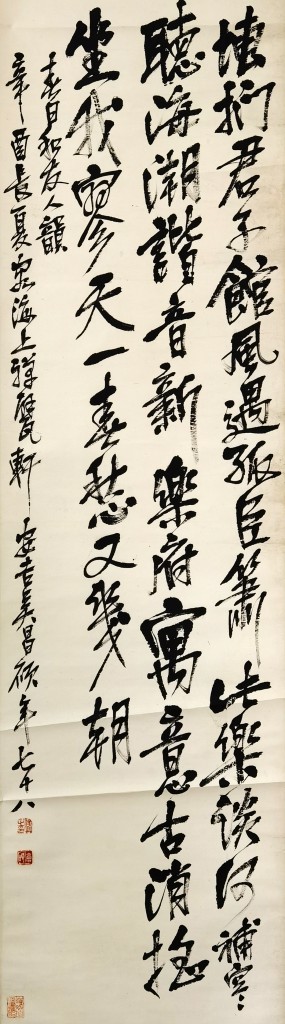 塼君子館風遏孤臣簫此樂談何補寒〻
聽海潮諧音新樂府寓意古消搖
坐我寥天一春愁又幾朝
春日和友人韻
辛酉長夏客海上禪甓軒安吉吳昌碩年七十八